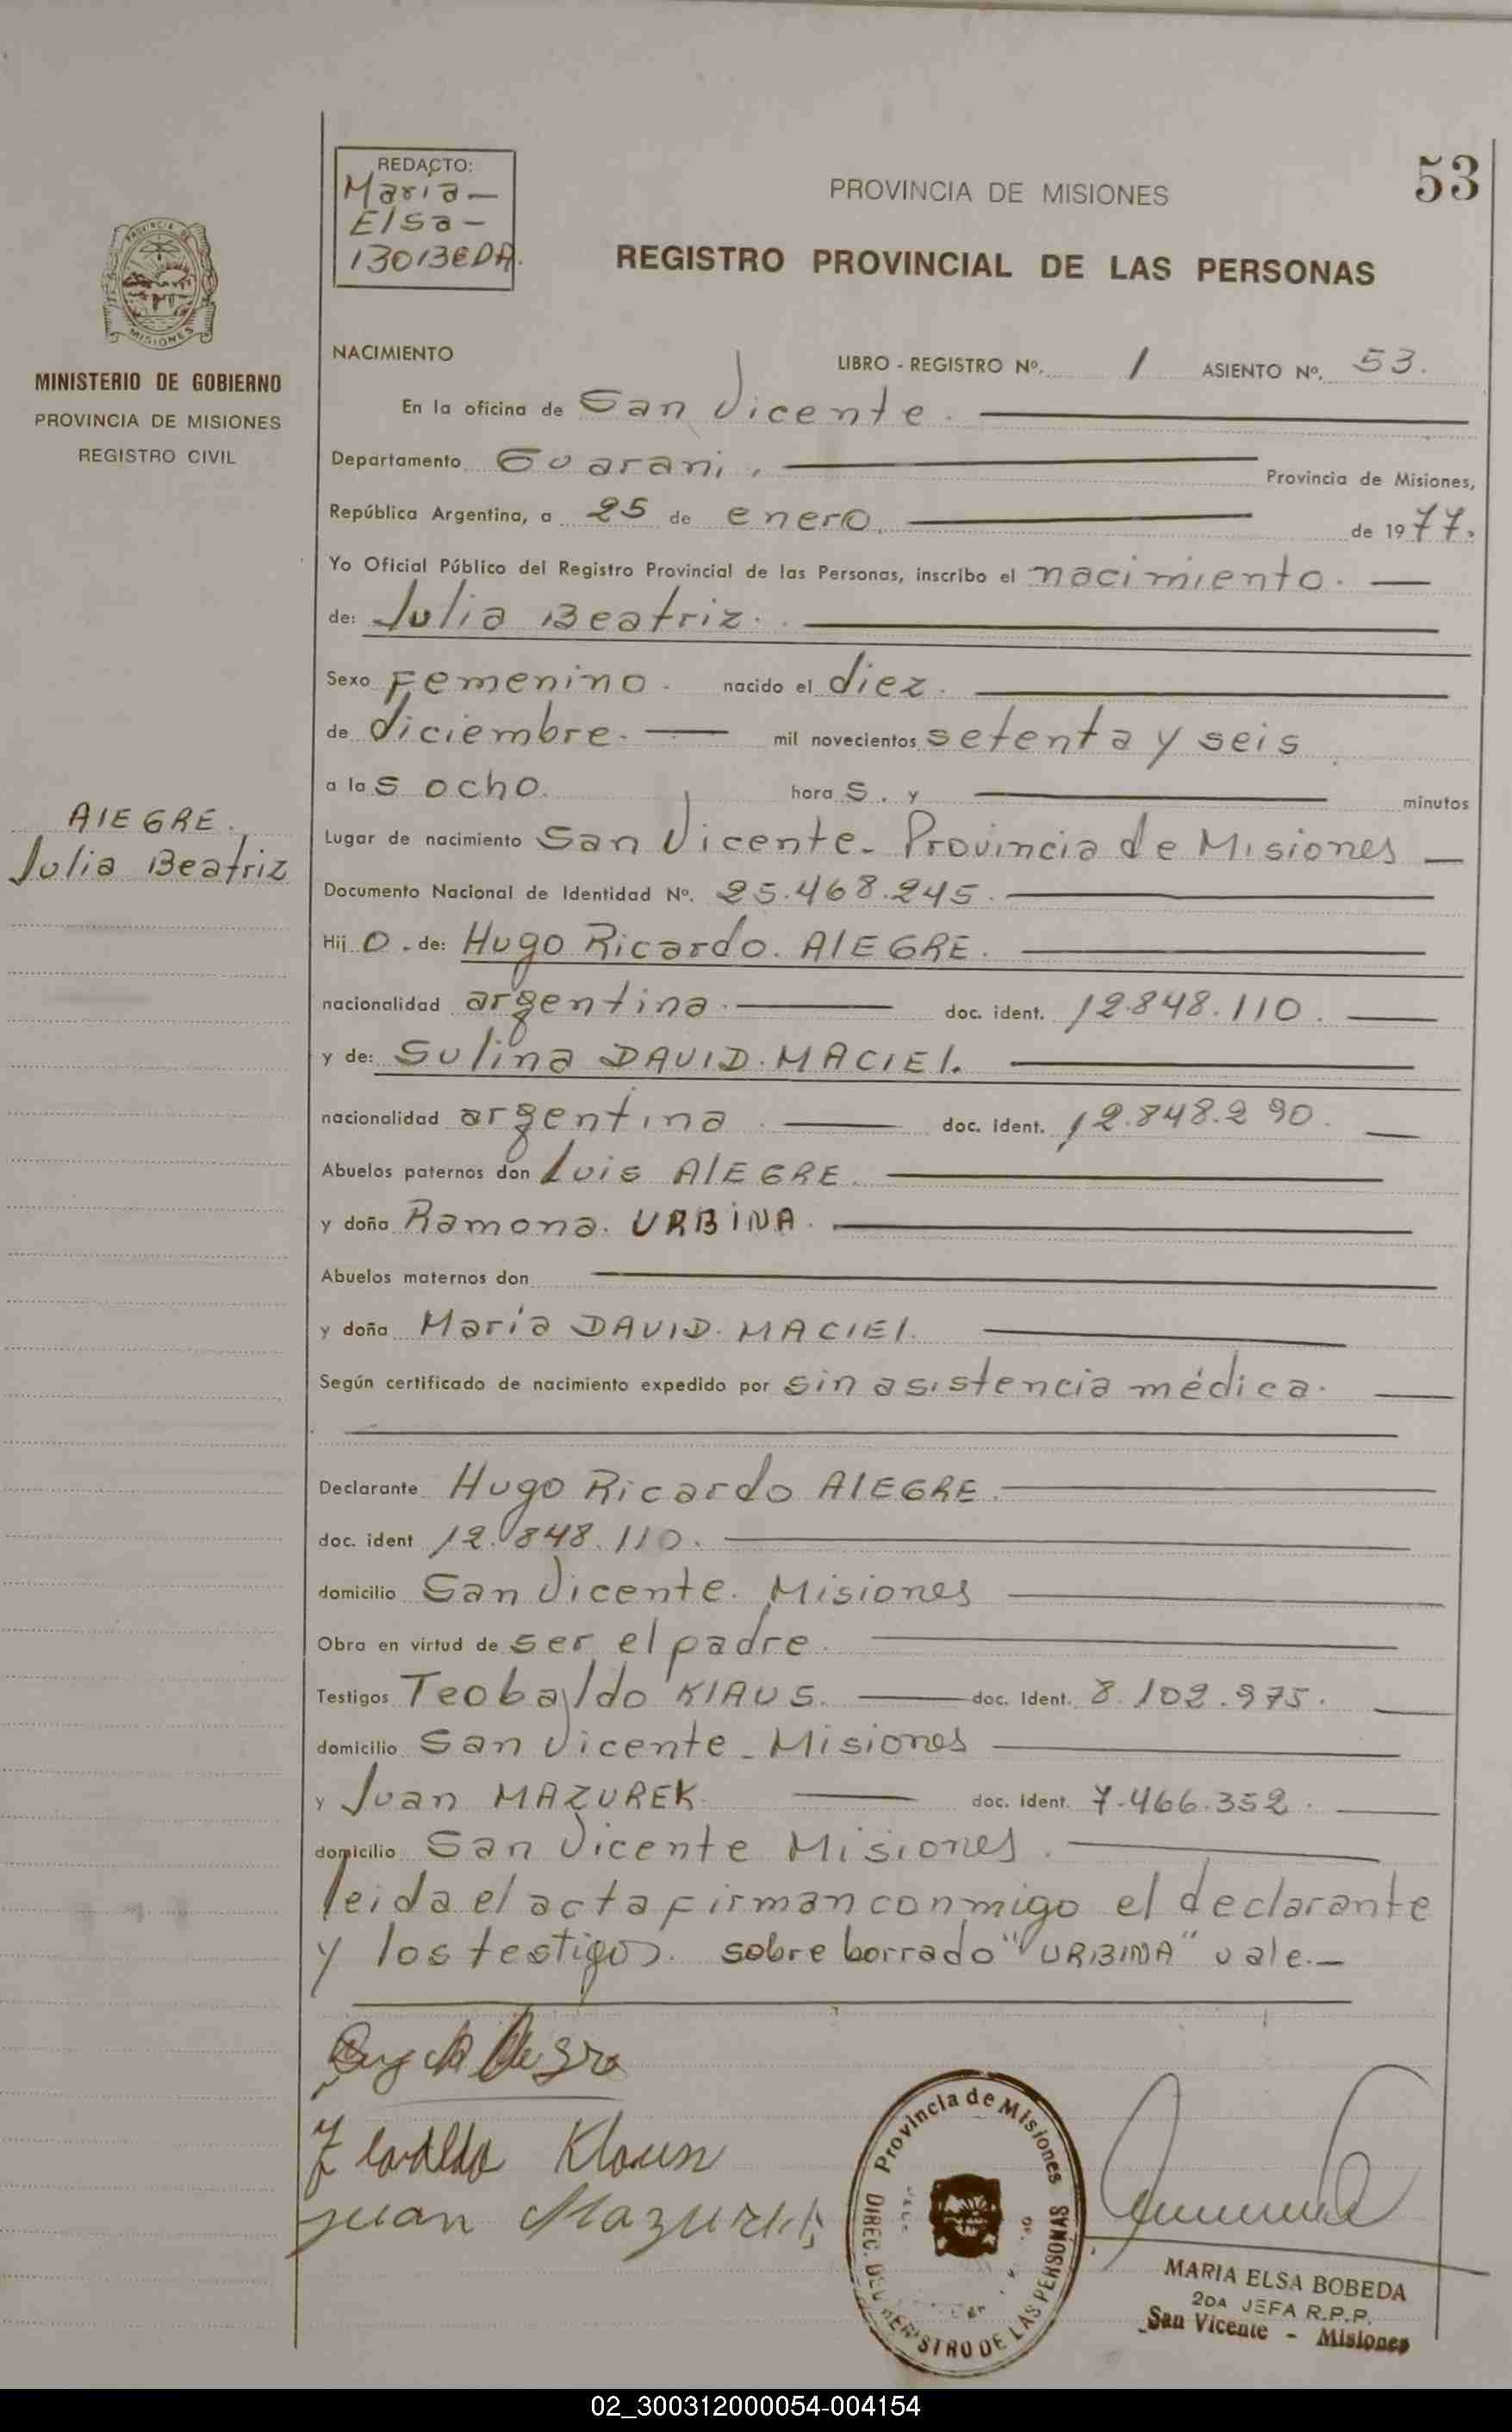 53
REDACTO:
Maria-
Elsa-
BOBEDA.
PROVINCIA DE MISIONES
REGISTRO PROVINCIAL DE LAS PERSONAS
MISIONES
MINISTERIO DE GOBIERNO
PROVINCIA DE MISIONES
REGISTRO CIVIL
AlEGRE.
Julia Beatriz
NACIMIENTO LIBRO - REGISTRO Nº. 1 ASIENTO Nº. 53.
En la oficina de San Vicente.
Departamento Guarani. Provincia de Misiones,
República Argentina, a 25 de enero. de 1977.
Yo Oficial Público del Registro Provincial de las Personas, inscribo el nacimiento.
de: Julia Beatriz.
Sexo Femenino. nacido el diez.
de diciembre. mil novecientos setenta y seis
a las ocho. horas. y minutos
Lugar de nacimiento San Vicente- Provincia de Misiones
Documento Nacional de Identidad Nº. 25.468.245.
Hijo. de: Hugo Ricardo. AlEGRE.
nacionalidad argentina. doc. ident. 12.848.110.
y de: Sulina DAVID. MACIEl.
nacionalidad argentina doc. ident. 12.848.290.
Abuelos paternos don Luis AlEGRE.
y doña Ramona. URBINA.
Abuelos maternos don
y doña María DAVID. MACIEl.
Según certificado de nacimiento expedido por sin asistencia médica.
Declarante Hugo Ricardo AlEGRE.
doc. ident 12.848.110.
domicilio San Vicente. Misiones
Obra en virtud de ser el padre.
Testigos Teobaldo KlAUS. doc. Ident. 8.102.975.
domicilio San Vicente - Misiones
y Juan MAZUREK. doc. Ident. 7.466.352.
domicilio San Vicente Misiones.
leida el acta firman conmigo el declarante
y los testigos. sobre borrado "URBINA" vale.-
Juan Mazurek
Provincia de Misiones
DIREC. DEL REGISTRO DE LAS PERSONAS
MARIA ELSA BOBEDA
2DA JEFA R.P.P.
San Vicente - Misiones
02_300312000054-004154